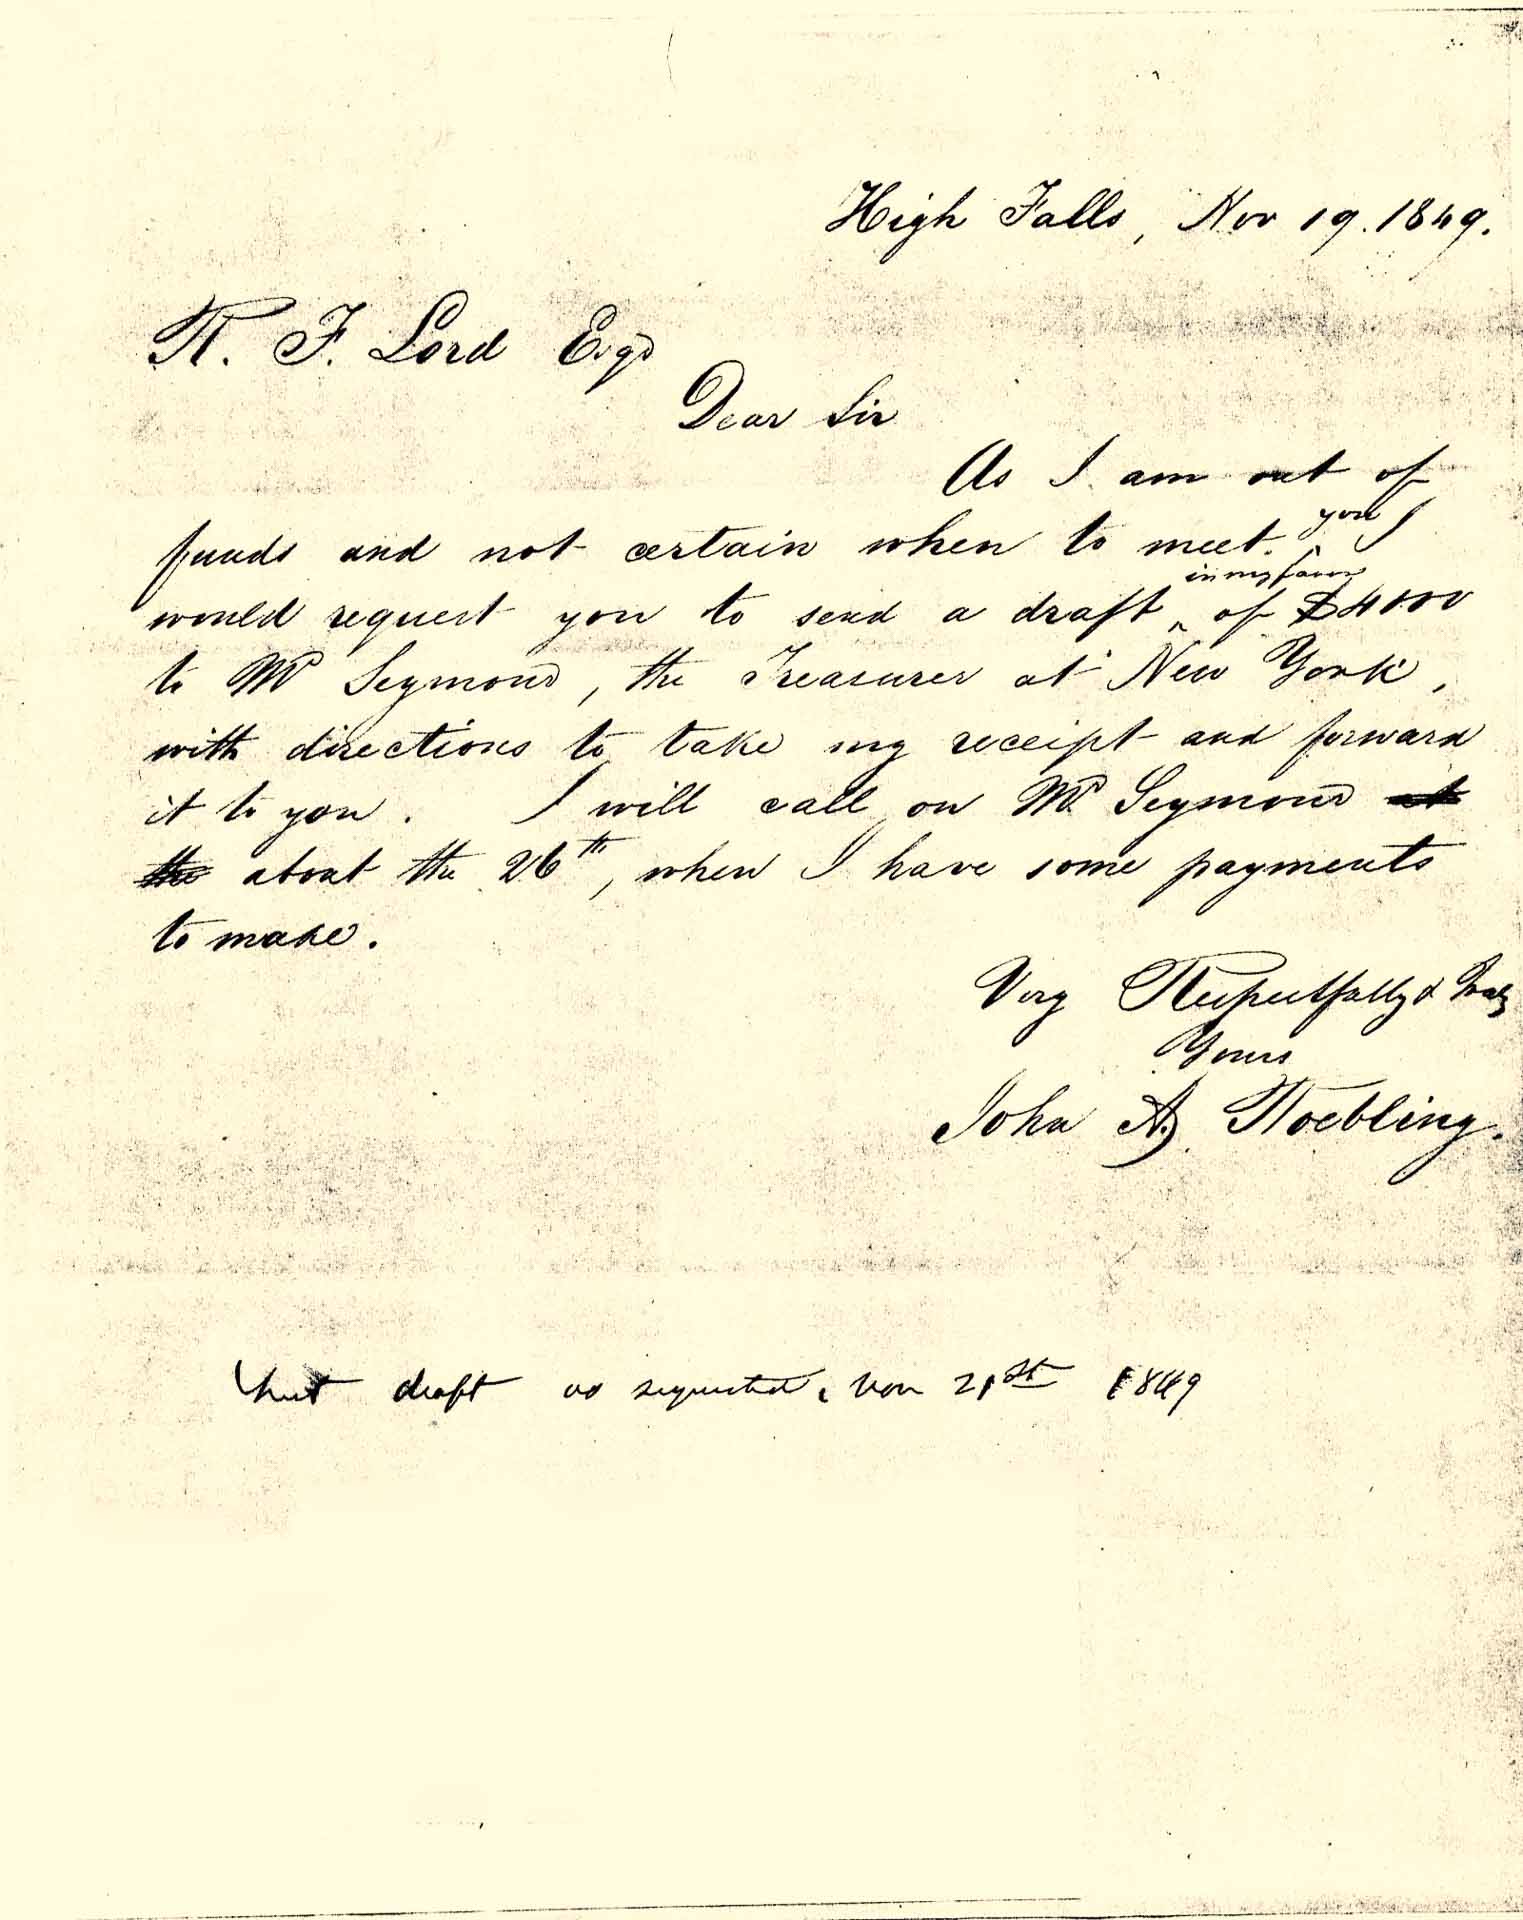 High Falls, Nov 19. 1849.
R. F. Lord Esqr
Dear Sir
As I am out of
funds and not certain when to meet you I
would request you to send a draft in my favor of $4000
to Mr Seymour, the Treasurer at New York,
with directions to take my receipt and forward
it to you. I will call on Mr Seymour at
the about the 26th, when I have some payments
to make.
Very Respectfully & Truly
Yours
John A. Roebling.
draft as requested, Nov 21st 1849